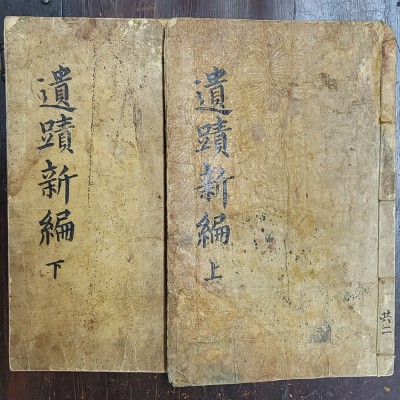 遺蹟新編 上
共二
遺蹟新編 下